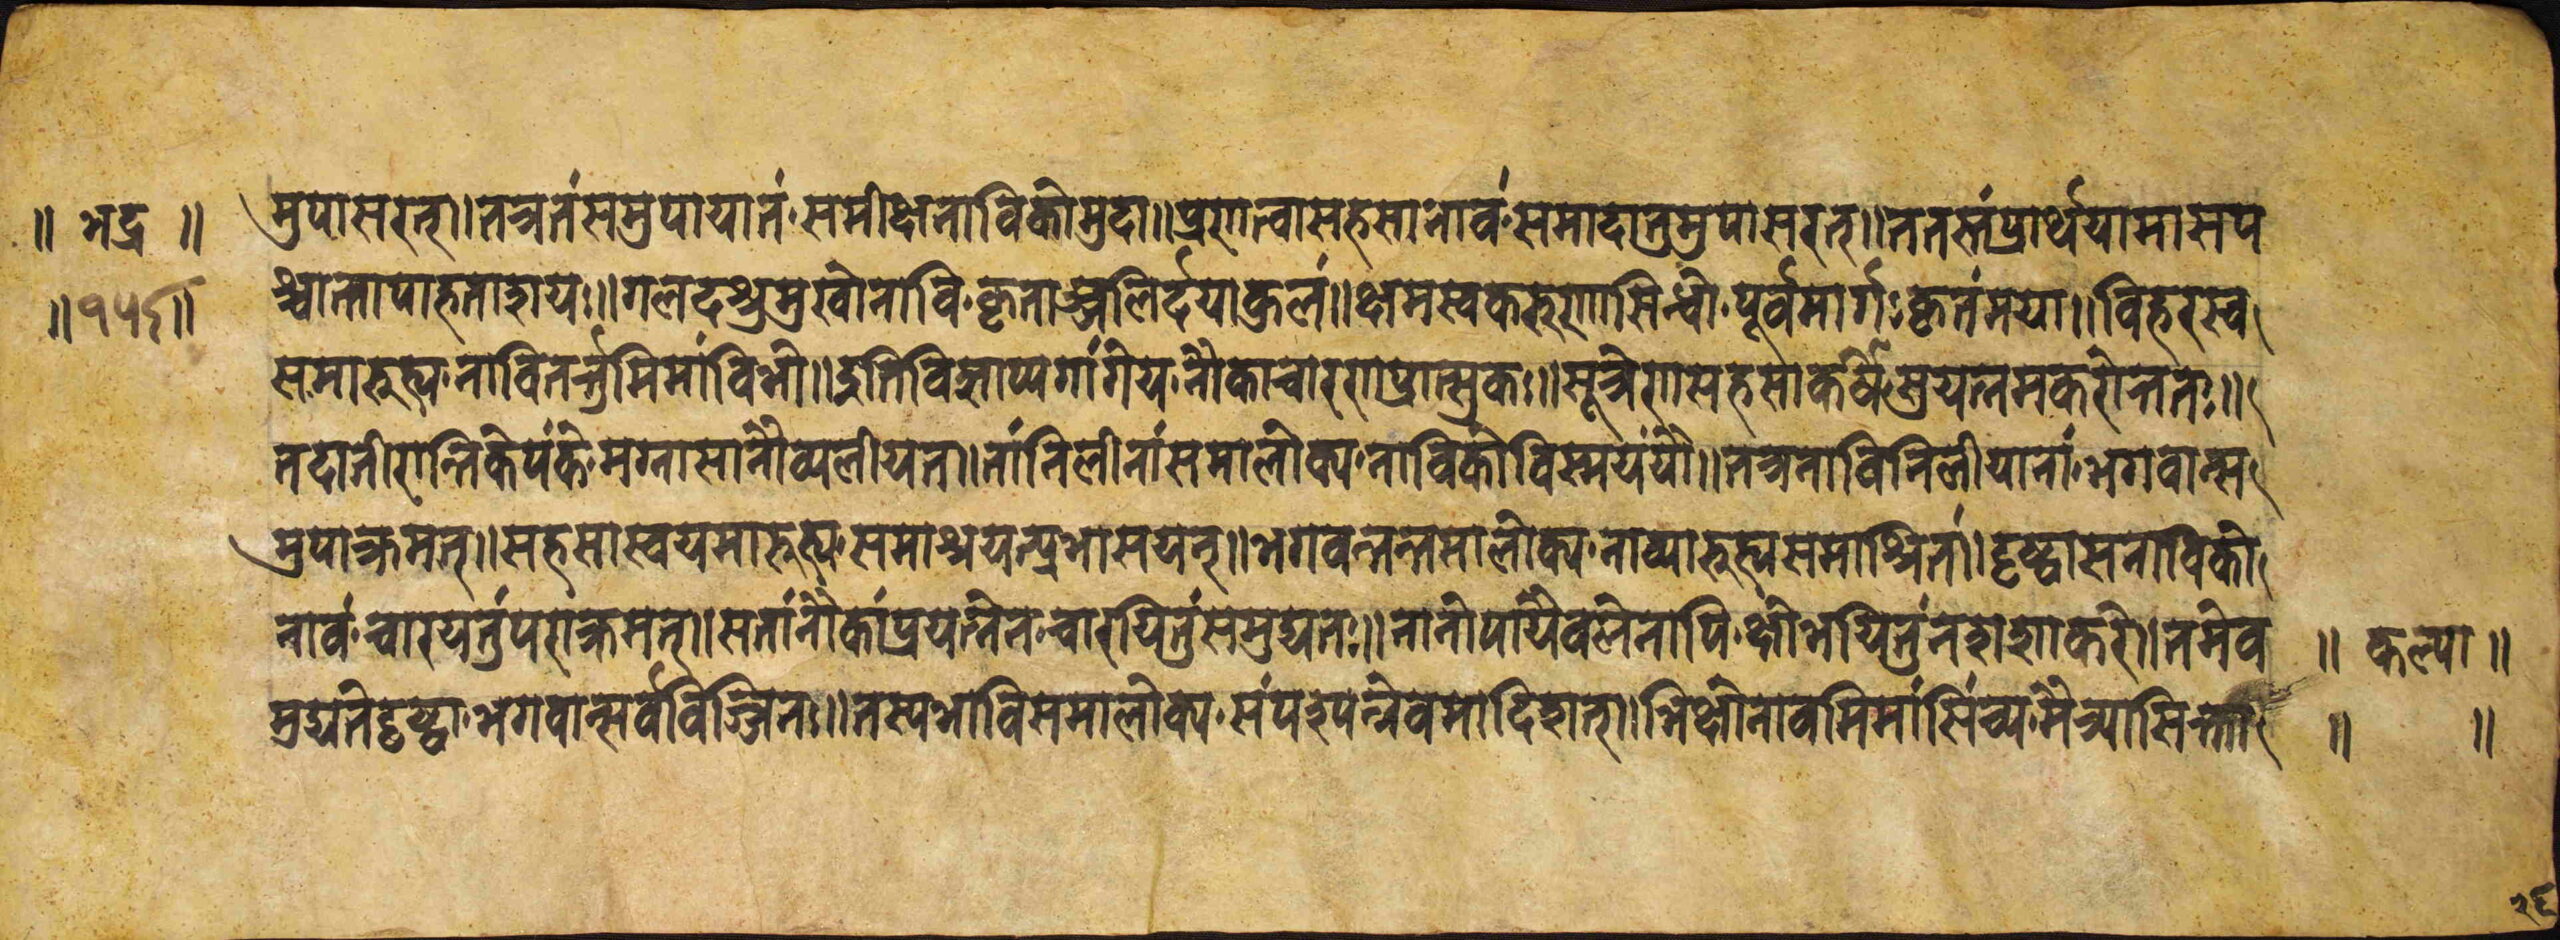 ॥ भद्र ॥
॥१५६॥
मुपासरत्॥तत्रतंसमुपायातं॰समीक्षनाविकोमुदा॥प्रणत्वासहसानावं॰समादातुमुपासरत्॥ततस्तंप्रार्थयामासप
श्चात्तापाहताशयः॥गलदश्रुमुखोनावि॰कृताञ्जलिर्दयाकुलं॥क्षमस्वकरुणासिन्धो॰पूर्वमार्गः कृतंमया॥विहरस्व
समारुह्य॰नावितर्त्तुमिमांविभो॥इतिविज्ञाप्यगांगेय॰नौकाचारणप्रोत्सुकः॥सूत्रेणसहसाकर्षि॰सुयत्नमकरोत्ततः॥
तदातीरान्तिकेपंके॰मग्नासानौव्यलीयत॥तांनिलीनांसमालोक्य॰नाविकोविस्मयंययौ॥तत्रनाविनिलीयानां॰भगवान्स
मुपाक्रमत्॥सहसास्वयमारुह्य॰समाश्रयत्प्रभासयन्॥भगवन्तन्तमालोक्य॰नाव्यारुह्यसमाश्रितं॥दृष्ट्वासनाविको
नावं॰चारयतुंपराक्रमत्॥सतांनौकांप्रयत्नेन॰चारयितुंसमुद्यतः॥नानोपायैवलेनापि॰क्षोभयितुंनशेशाकरो॥तमेव
मुद्यतेदृष्ट्वा॰भगवान्सर्वविज्जिनः॥तस्यभाविसमालोक्य॰संपश्यन्नेवमादिशत्॥भिक्षोनावमिमांसिंच्य॰मैत्र्यासिक्ता
॥ कल्पा ॥
॥ ॥
२६